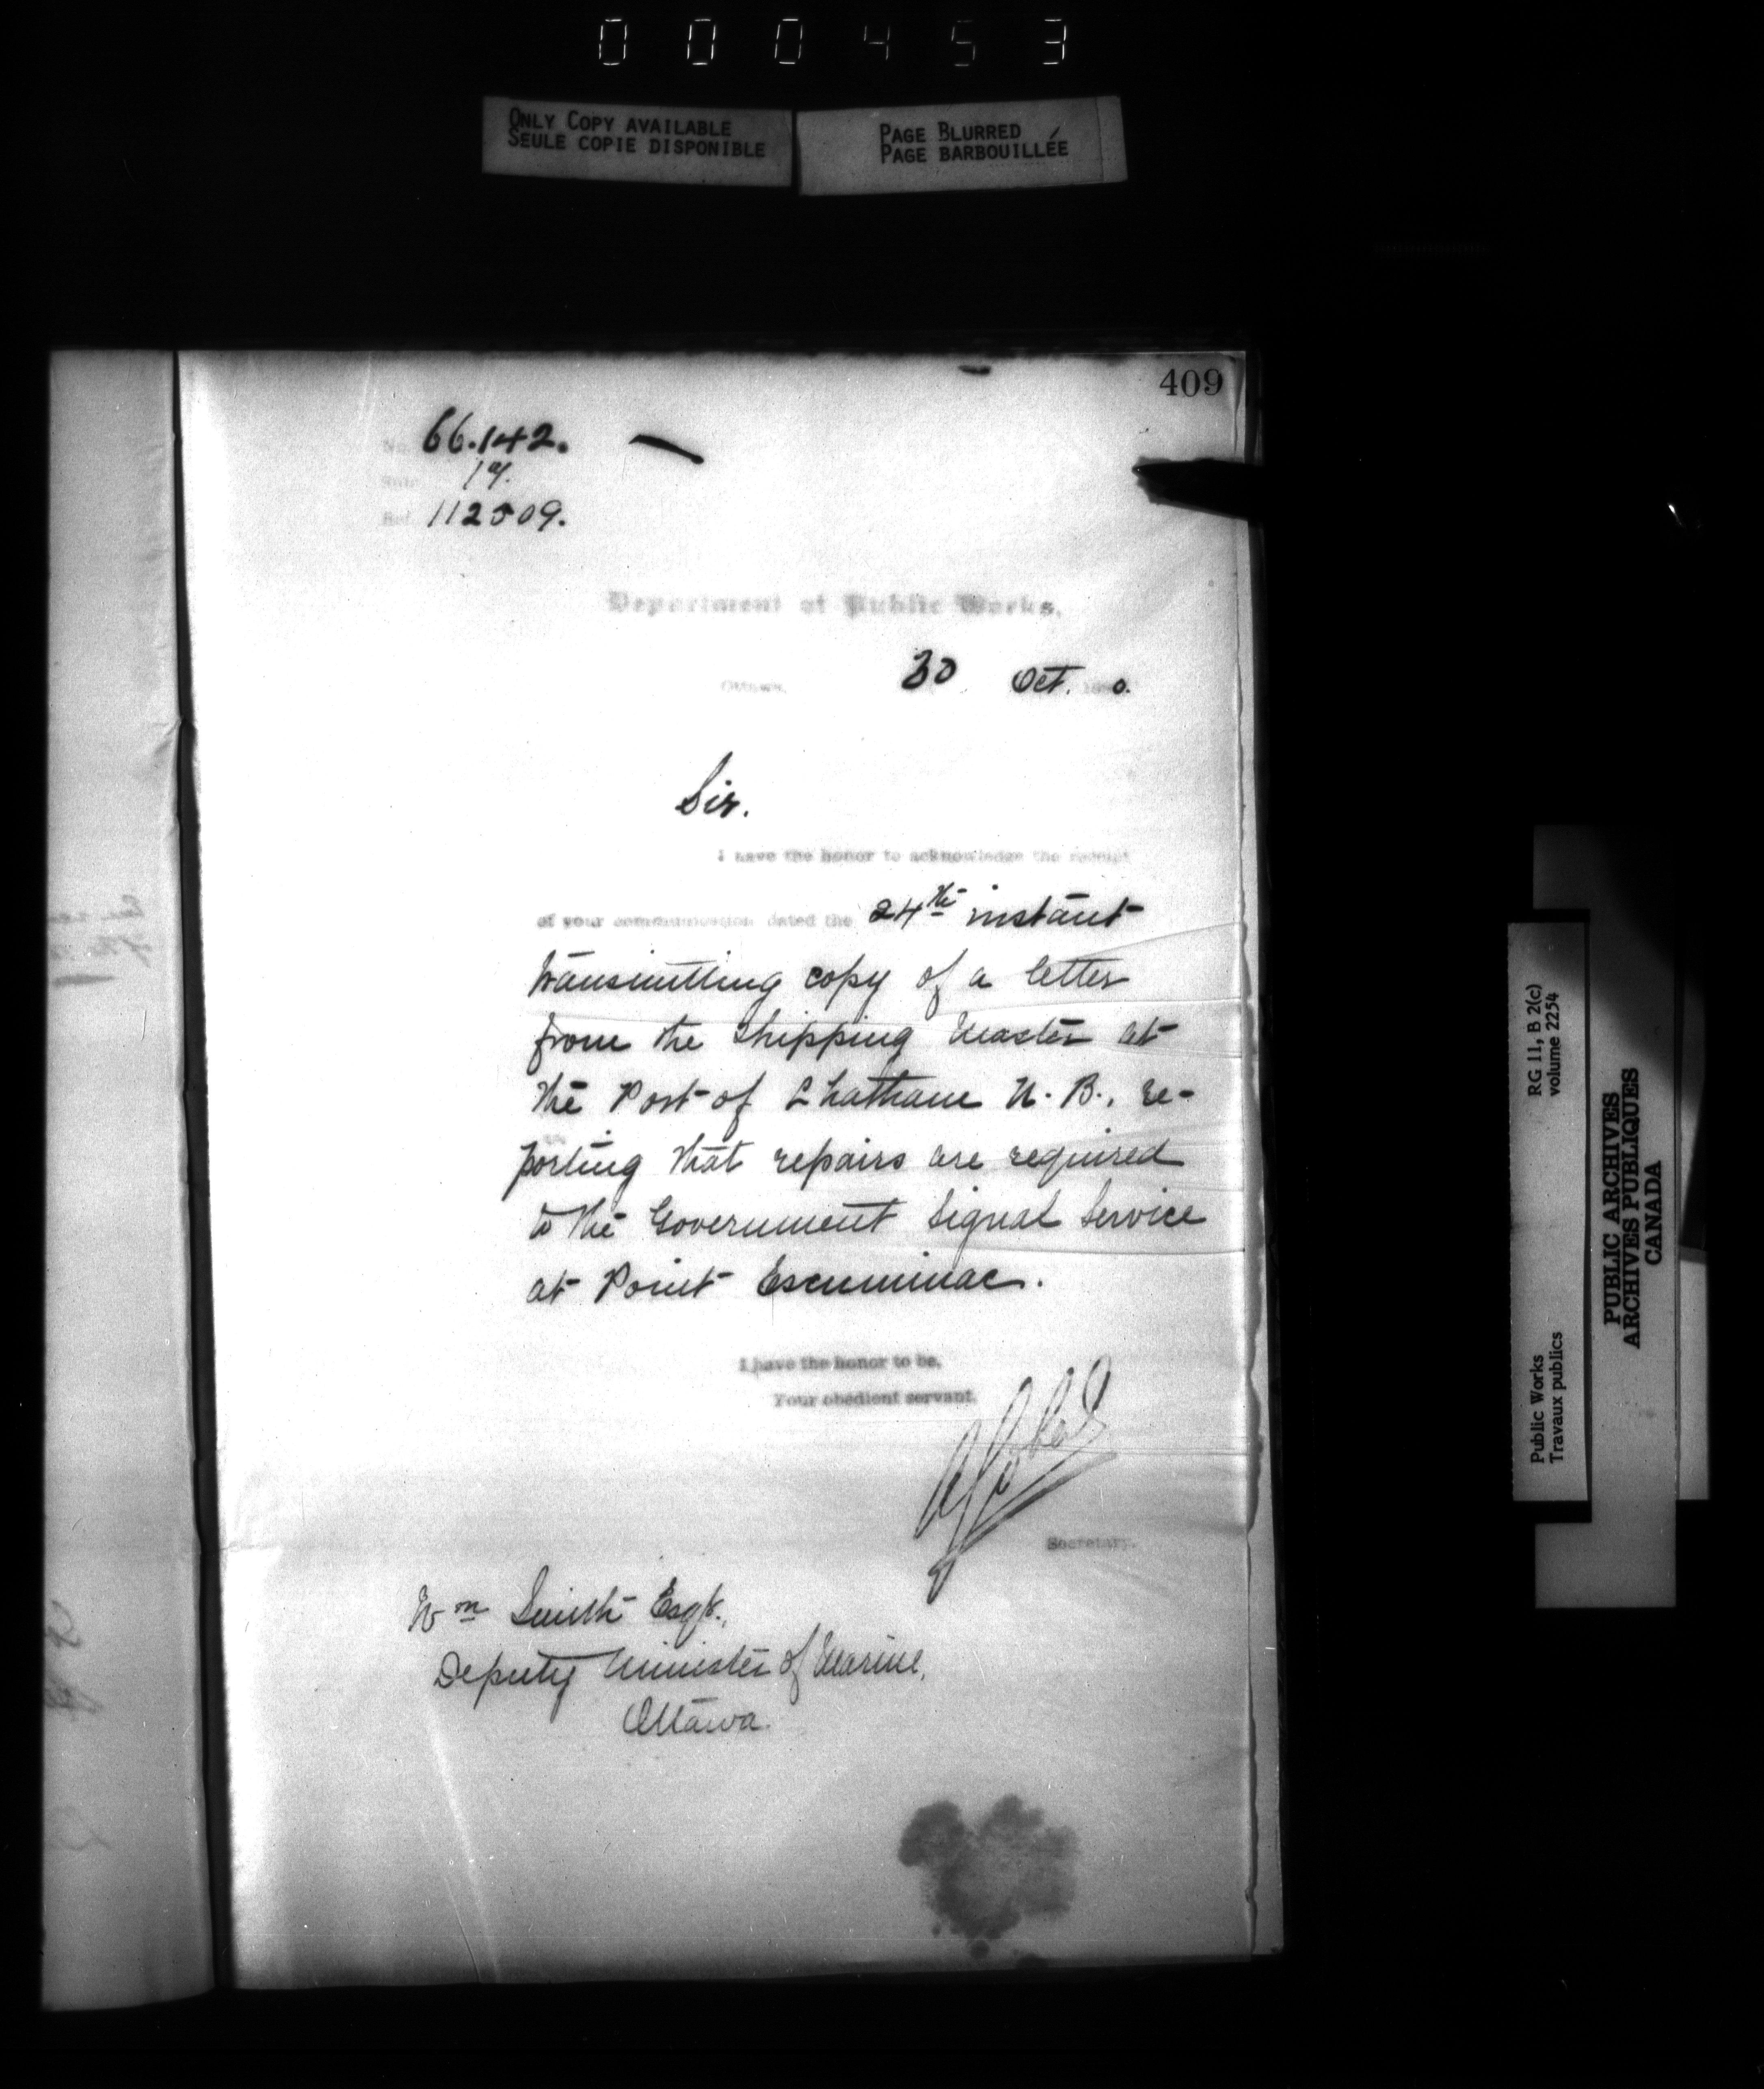 000453
ONLY COPY AVAILABLE
SEULE COPIE DISPONIBLE
PAGE BLURRED
PAGE BARBOUILLÉE
409
No. 66.142.
Ref. 112509.
Department of Public Works.
Ottawa, 30 Oct. 18 0.
Sir.
I have the honor to acknowledge the receipt
of your communication dated the 24th instant
transmitting copy of a letter
from the Shipping Master at
the Port of Chatham N.B., re-
porting that repairs are required
to the Government Signal Service
at Point Escuminac.
I have the honor to be,
Your obedient servant,
Secretary.
Wm Smith Esqr.,
Deputy Minister of Marine,
Ottawa.
RG 11, B 2(c)
volume 2254
Public Works
Travaux publics
PUBLIC ARCHIVES
ARCHIVES PUBLIQUES
CANADA